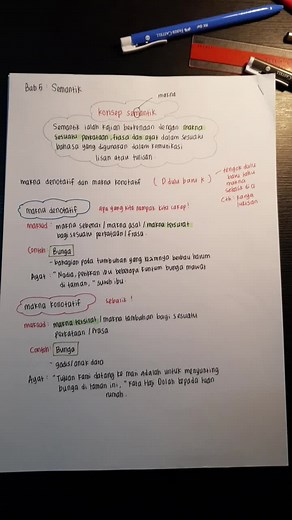 Bab 5 : Semantik
makna
konsep semantik
Semantik ialah kajian berkenaan dengan makna
sesuatu perkataan, frasa dan ayat dalam sesuatu
bahasa yang digunakan dalam komunikasi
lisan atau tulisan
makna denotatif dan makna konotatif ( D dulu baru K )
tengok dulu
baru tahu
makna
sebalik dia
makna denotatif
apa yang kita nampak kita cakap!
maksud: makna sebenar / makna asal / makna tersurat
bagi sesuatu perkataan / frasa
Contoh: Bunga
- bahagian pada tumbuhan yang lazimnya berbau harum
Ayat : "Nadia, petikan ibu beberapa kuntum bunga mawar
di taman," suruh ibu
makna konotatif
sebalik !
maksud: makna tersirat / makna tambahan bagi sesuatu
perkataan / frasa
Contoh: Bunga
- gadis / anak dara
Ayat : "Tujuan kami datang ke mari adalah untuk menyunting
bunga di taman ini," kata Haji Dolah kepada tuan
rumah.